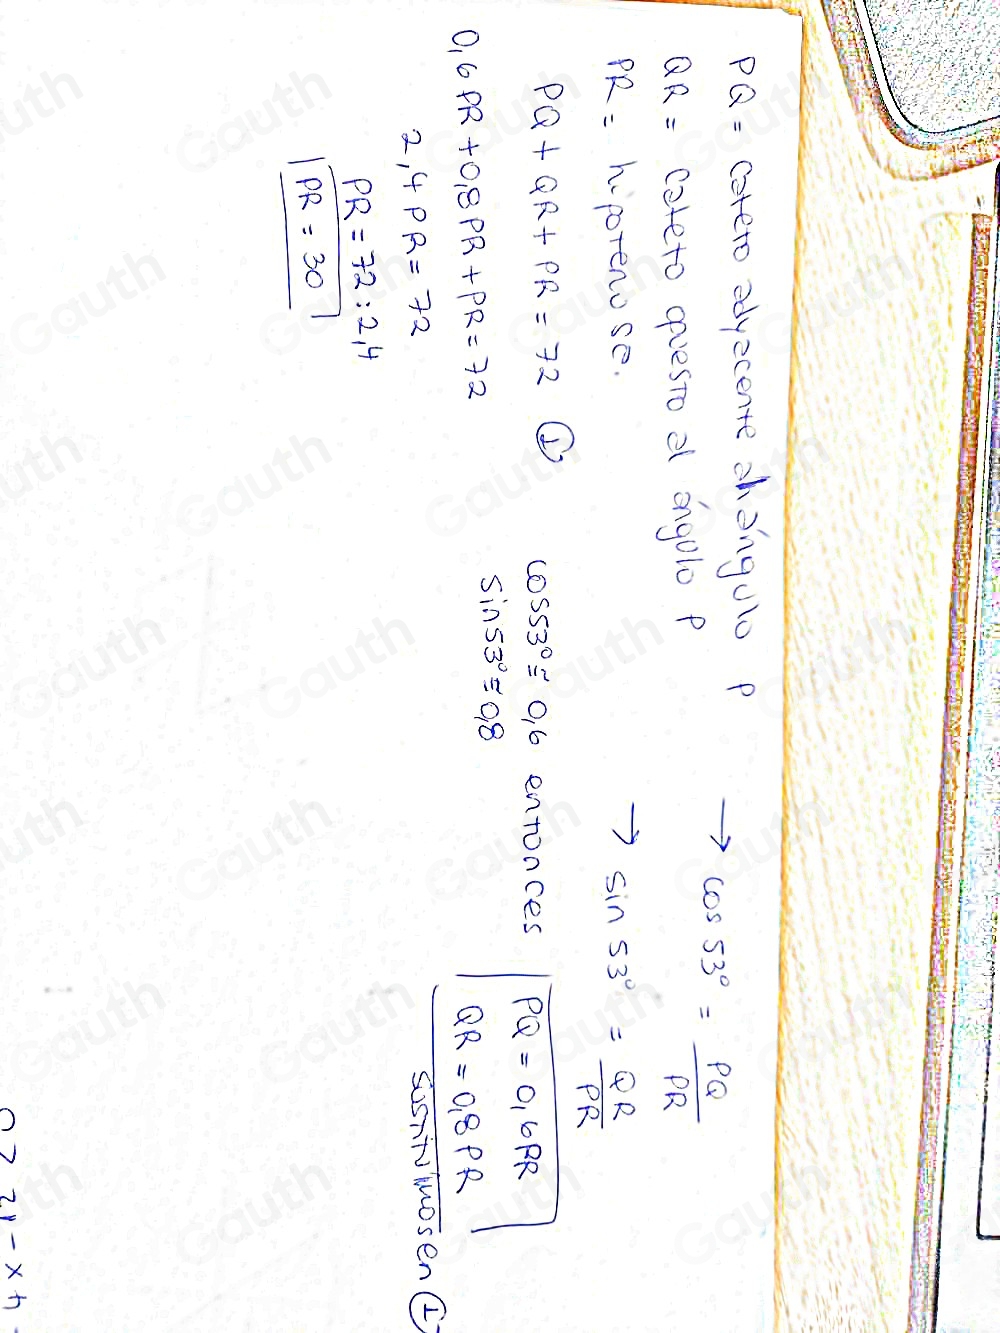 PQ = cateto adyacente al ángulo P → cos 53° = PQ/PR
QR = cateto opuesto al ángulo P → sin 53° = QR/PR
PR = hipotenusa.
PQ + QR + PR = 72 ① cos53° ≅ 0,6 entonces PQ = 0,6PR
sin53° ≅ 0,8 QR = 0,8PR
0,6PR + 0,8PR + PR = 72 sustituimos en ①
2,4PR = 72
PR = 72:2,4
PR = 30
Gauth